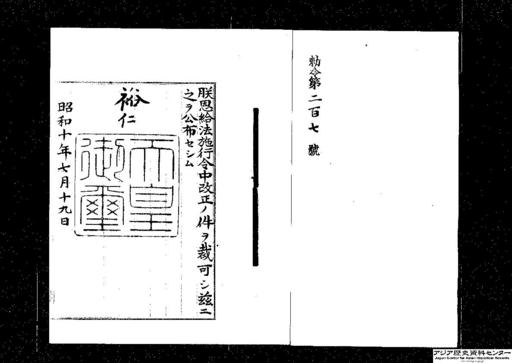 勅令第二百七號
朕恩給法施行令中改正ノ件ヲ裁可シ茲ニ
之ヲ公布セシム
裕仁
天皇
御璽
昭和十年七月十九日
アジア歴史資料センター
Japan Center for Asian Historical Records